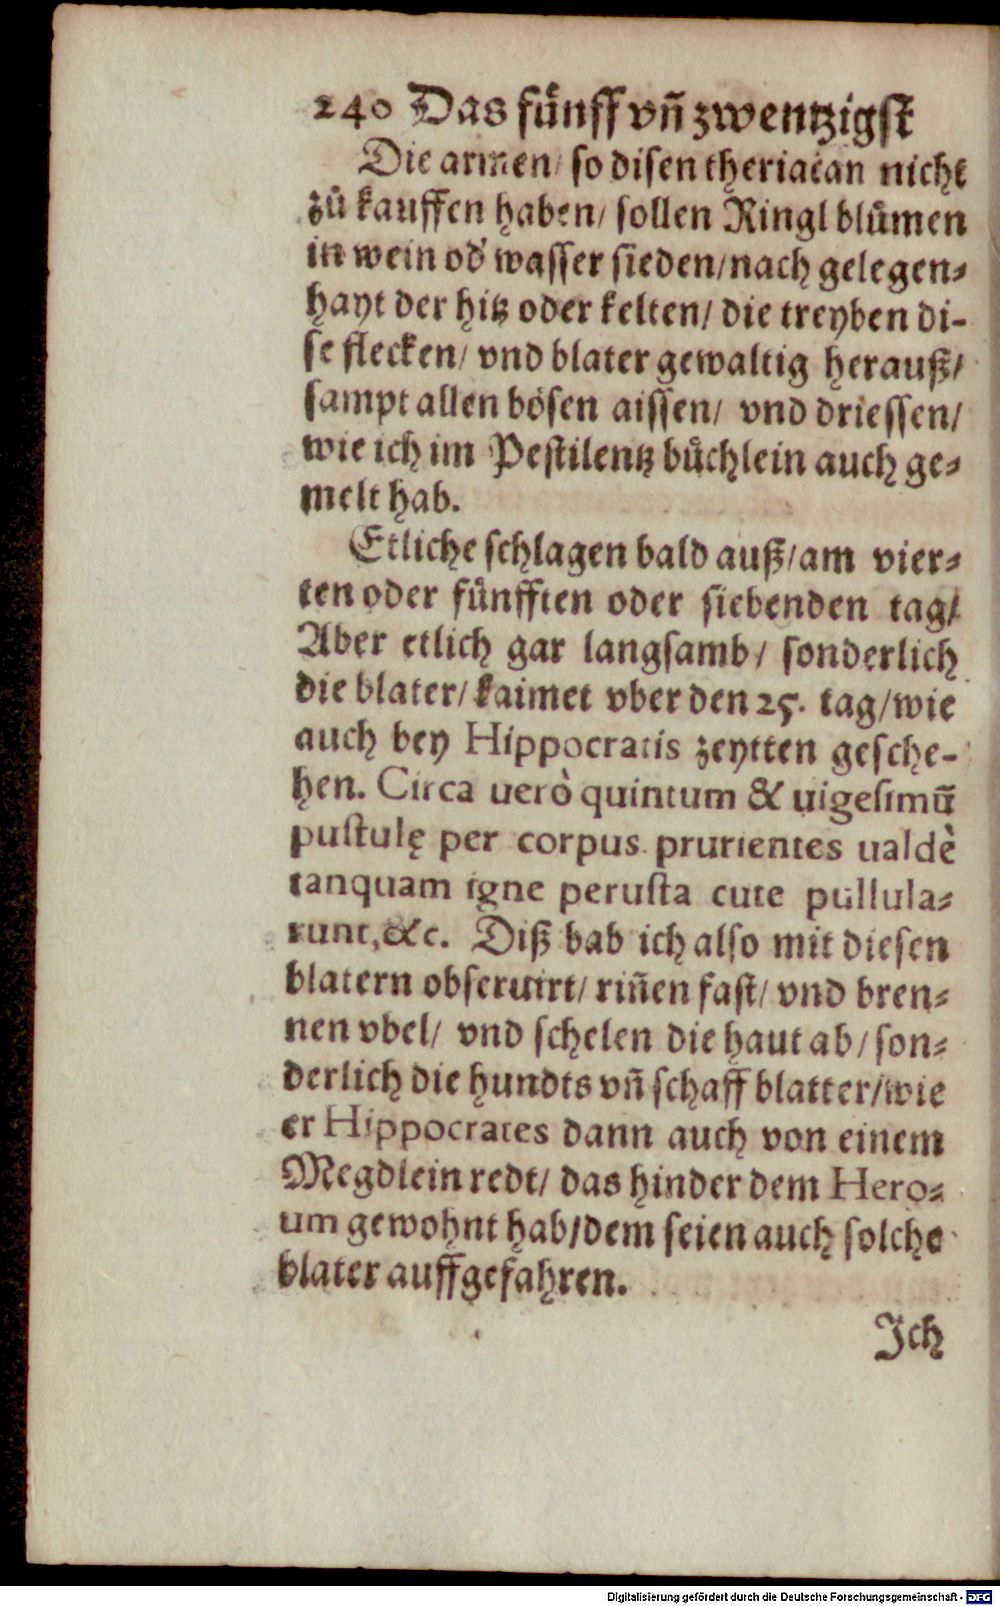 240 Das fünff vñ zwentzigst
Die armen/ so disen theriacan nicht
zů kauffen haben/ sollen Ringl blůmen
in wein od' wasser sieden/ nach gelegen⸗
hayt der hitz oder kelten/ die treyben di-
se flecken/ vnd blater gewaltig herauß/
sampt allen bösen aissen/ vnd driessen/
wie ich im Pestilentz bůchlein auch ge⸗
melt hab.
Etliche schlagen bald auß/ am vier⸗
ten oder fünfften oder siebenden tag/
Aber etlich gar langsamb/ sonderlich
die blater/ kaimet vber den 25. tag/ wie
auch bey Hippocratis zeytten gesche-
hen. Circa uerò quintum & uigesimũ
pustulę per corpus prurientes ualdè
tanquam igne perusta cute pullula⸗
runt, &c. Diß hab ich also mit diesen
blatern obseruirt/ riñen fast/ vnd bren⸗
nen vbel/ vnd schelen die haut ab/ son⸗
derlich die hundts vñ schaff blatter/ wie
er Hippocrates dann auch von einem
Megdlein redt/ das hinder dem Hero⸗
um gewohnt hab/ dem seien auch solche
blater auffgefahren.
Ich
Digitalisierung gefördert durch die Deutsche Forschungsgemeinschaft - DFG